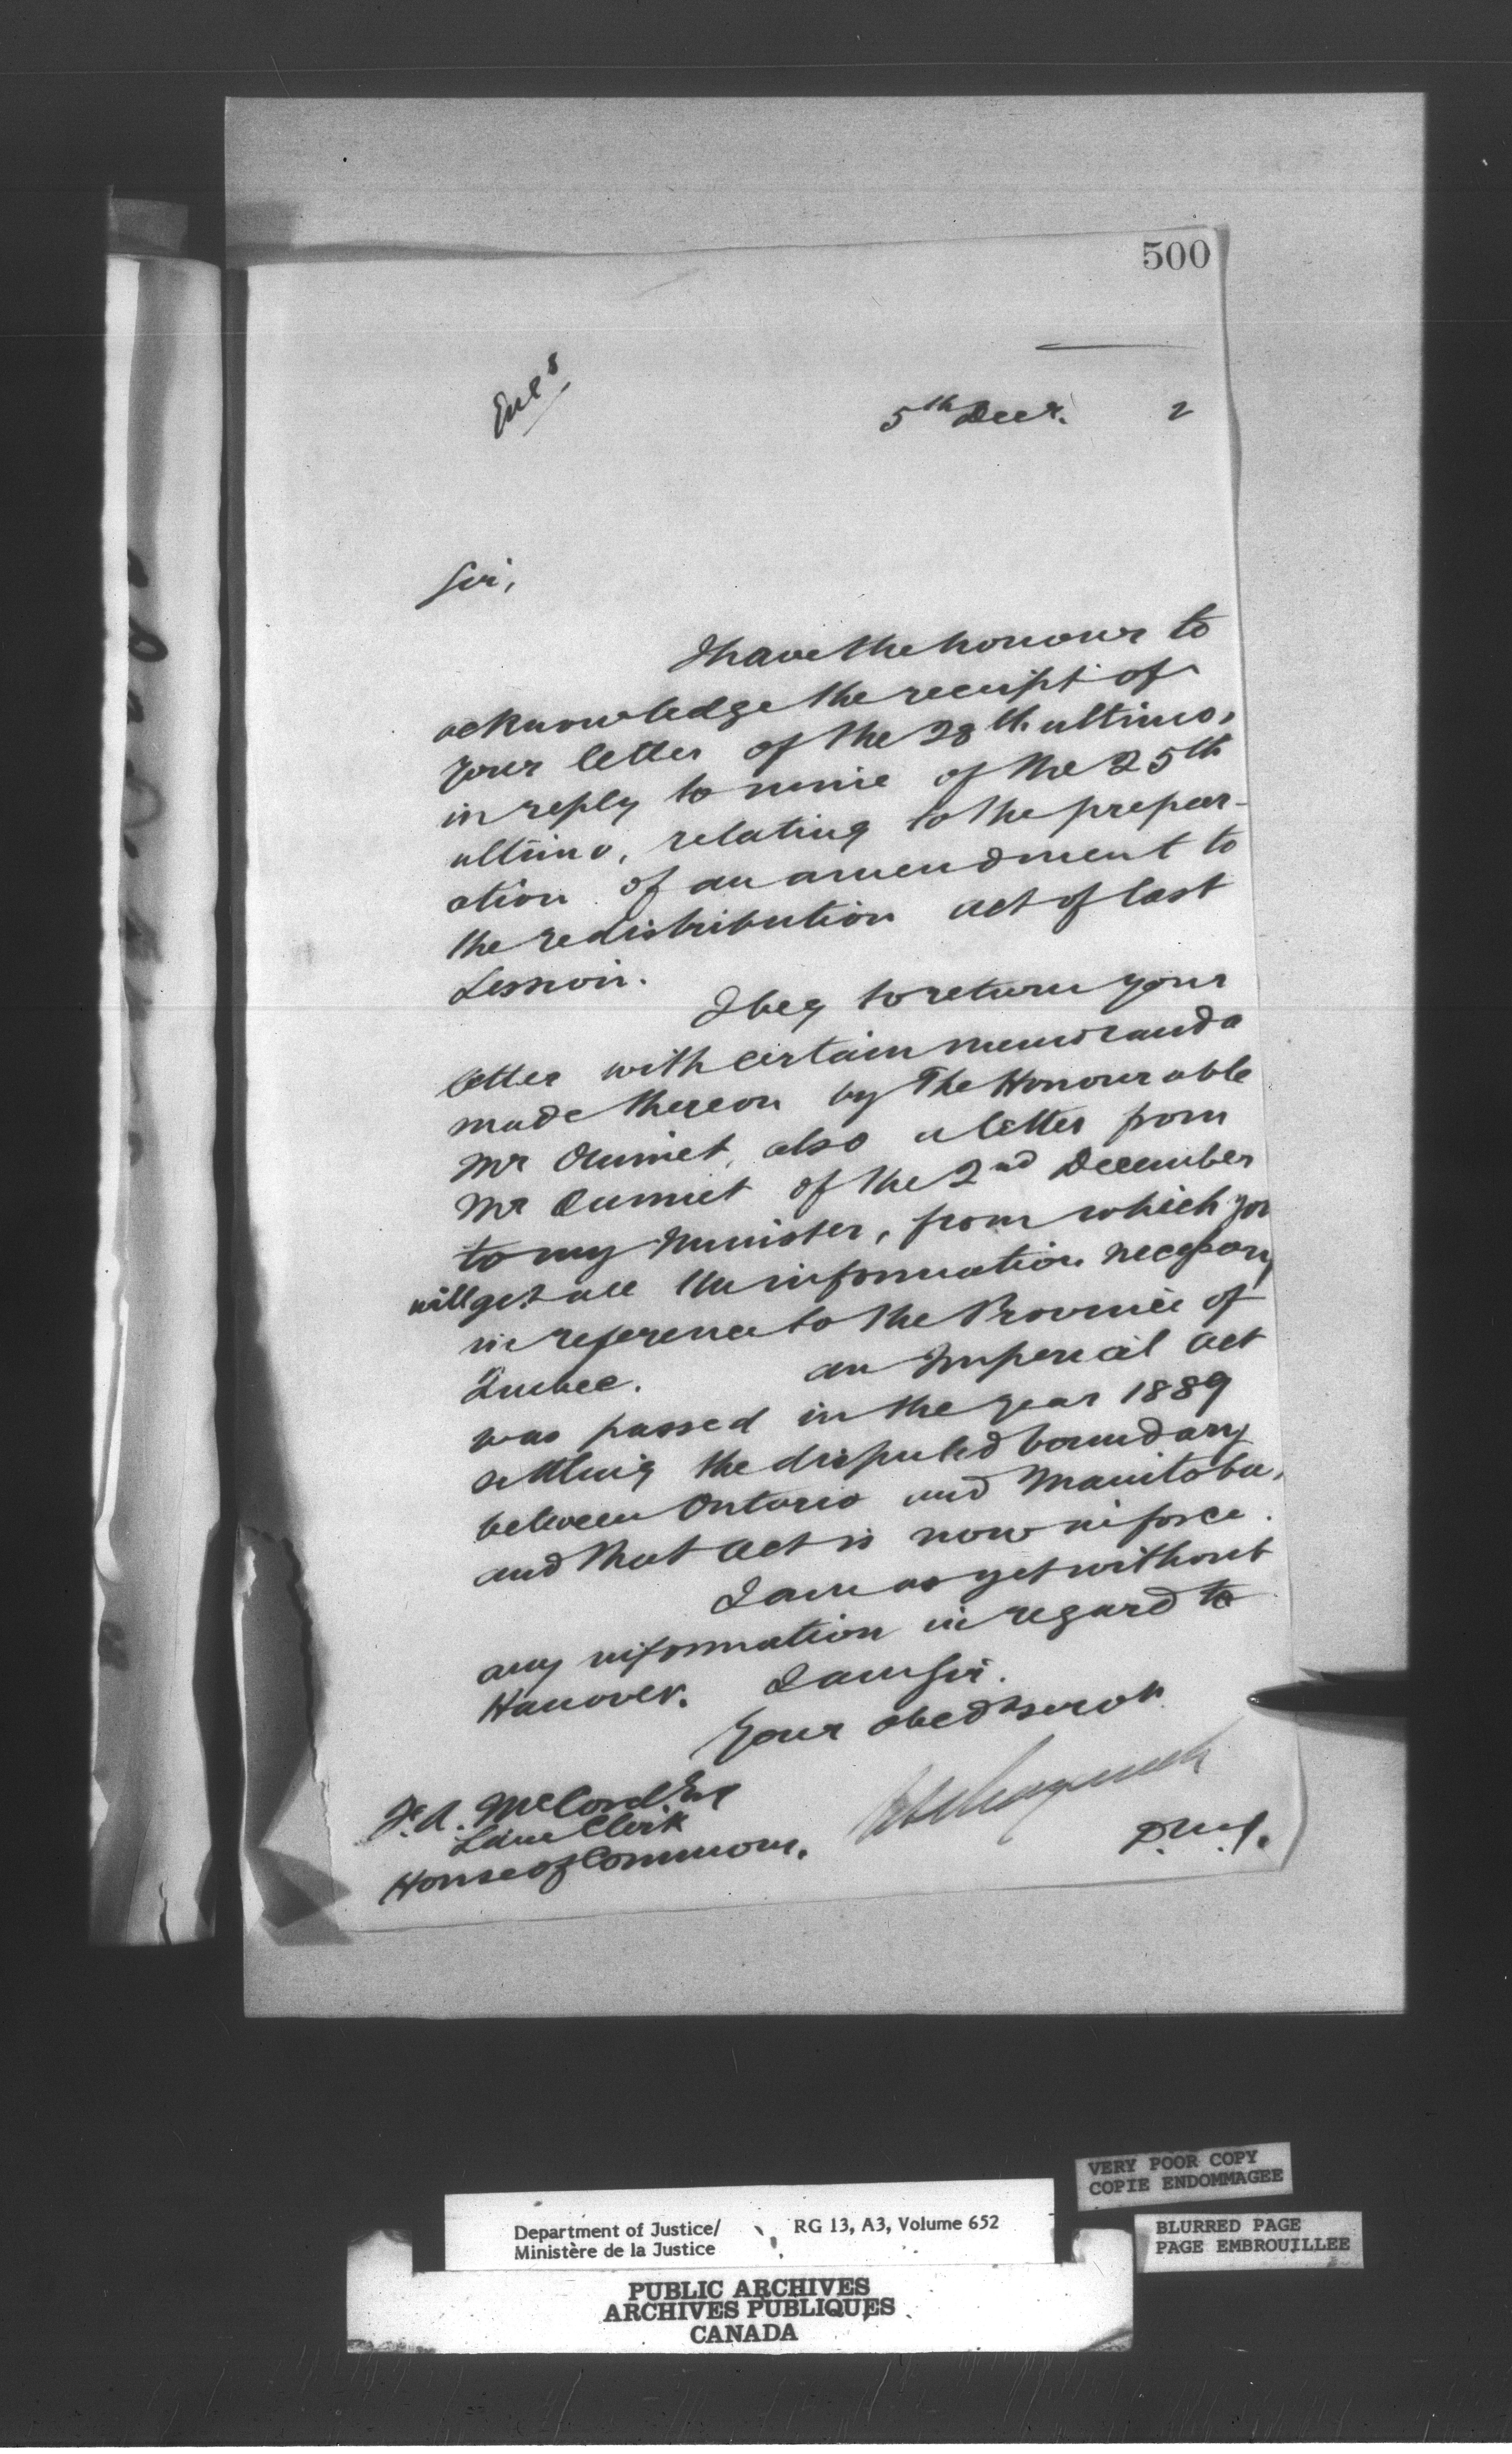 500
Encs
5th Decr. 2
Sir,
I have the honour to
acknowledge the receipt of
your letter of the 28th ultimo,
in reply to mine of the 25th
ultimo, relating to the prepar-
ation of an amendment to
the redistribution act of last
Session.
I beg to return your
letter with certain memoranda
made thereon by The Honourable
Mr Ouimet, also a letter from
Mr Ouimet of the 2nd December
to my Minister, from which you
will get all the information necessary
in reference to the Province of
Quebec. an Imperial act
was passed in the year 1889
settling the disputed boundary
between Ontario and Manitoba,
and that act is now in force.
I am as yet without
any information in regard to
Hanover. I am Sir.
Your obedt servt
F. A. McCord Esq
Law Clerk
House of Commons.
D.M.J.
VERY POOR COPY
COPIE ENDOMMAGEE
BLURRED PAGE
PAGE EMBROUILLEE
Department of Justice/
Ministère de la Justice
RG 13, A3, Volume 652
PUBLIC ARCHIVES
ARCHIVES PUBLIQUES
CANADA